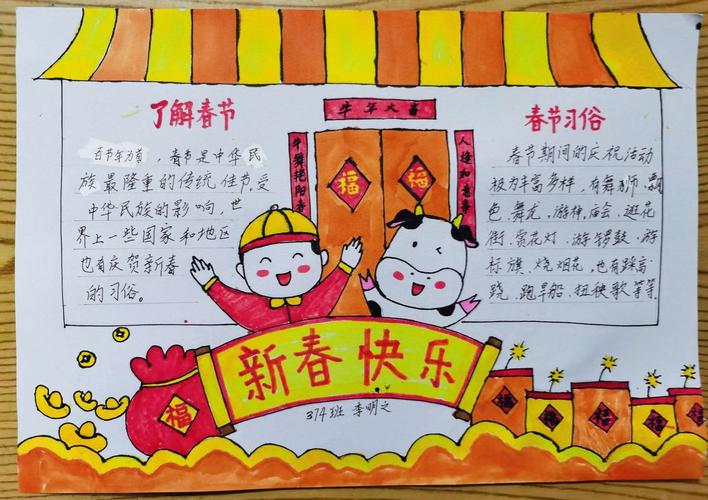 牛年大吉
牛舞艳阳春
人逢如意
福
福
了解春节
百节年为首，春节是中华民
族最隆重的传统佳节,受
中华民族的影响,世
界上一些国家和地区
也有庆贺新春
的习俗。
春节习俗
春节期间的庆祝活动
极为丰富多样,有舞狮、飘
色、舞龙、游神、庙会、逛花
街、赏花灯、游锣鼓、游
标旗、烧烟花、也有踩高
跷、跑旱船、扭秧歌等等.
新春快乐
福
374班 李明之
福
福
福
福
福